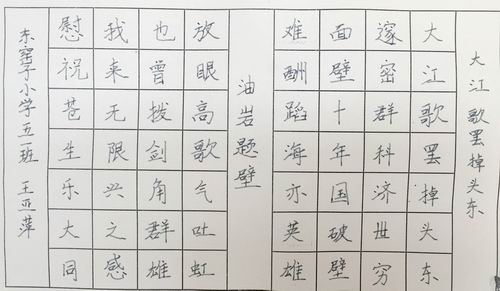 大江歌罢掉头东
大江歌罢掉头东
邃密群科济世穷
面壁十年国破壁
难酬蹈海亦英雄
油岩题壁
放眼高歌气吐虹
也曾拨剑角群雄
我来无限兴之感
慰祝苍生乐大同
东窑子小学五一班 王亚萍